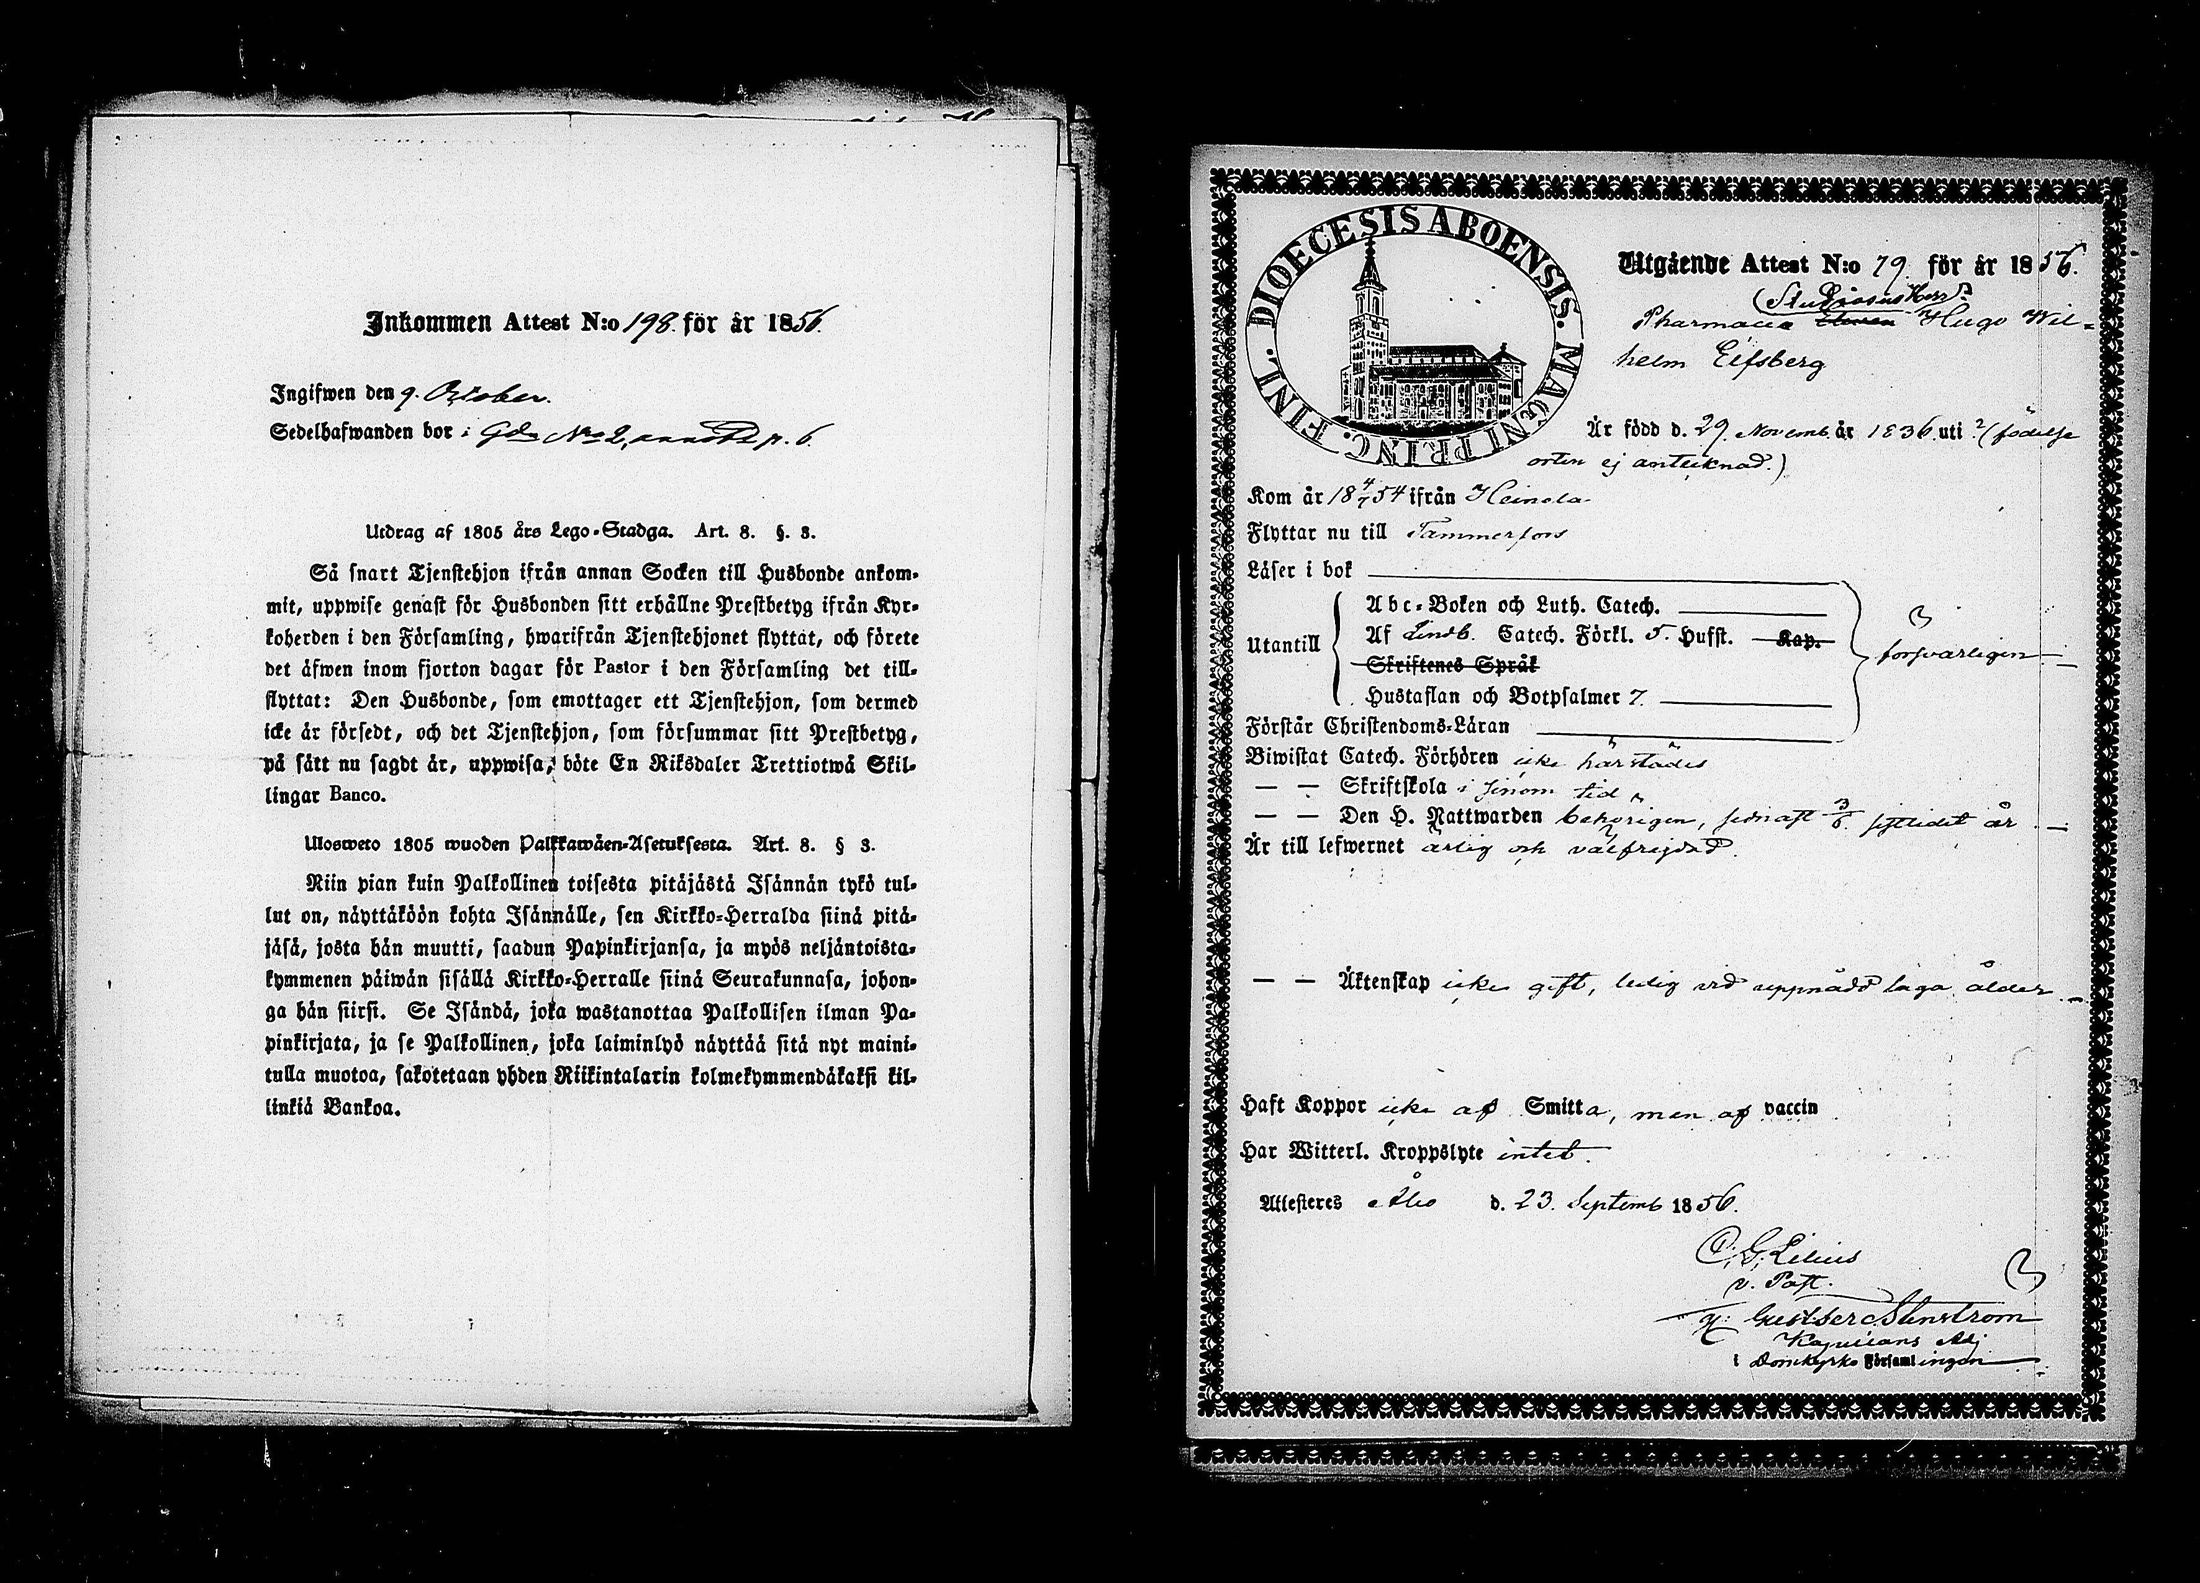 Inkommen Attest N:o 198. för år 1856.
Ingifwen den 9. October.
Sedelhafwanden bor i Gdn No 2, p. 6.
Utdrag af 1805 års Lego-Stadga. Art. 8. §. 3.
Så snart Tjenstehjon ifrån annan Socken till Husbonde ankom-
mit, uppwise genast för Husbonden sitt erhållne Prestbetyg ifrån Kyr-
koherden i den Församling, hwarifrån Tjenstehjonet flyttat, och förete
det äfwen inom fjorton dagar för Pastor i den Församling det till-
flyttat: Den Husbonde, som emottager ett Tjenstehjon, som dermed
icke är försedt, och det Tjenstehjon, som försummar sitt Prestbetyg,
på sätt nu sagdt är, uppwisa, böte En Riksdaler Trettiotwå Skil-
lingar Banco.
Ulosweto 1805 wuoden Palkkawäen-Asetuksesta. Art. 8. § 3.
Niin pian kuin Palkollinen toisesta pitäjästä Isännän tykö tul-
lut on, näyttäköön kohta Isännälle, sen Kirkko-Herralda siinä pitä-
jäsä, josta hän muutti, saadun Papinkirjansa, ja myös neljäntoista-
kymmenen päiwän sisällä Kirkko-Herralle siinä Seurakunnasa, johon-
ga hän siirsi. Se Isändä, joka wastanottaa Palkollisen ilman Pa-
pinkirjata, ja se Palkollinen, joka laiminlyö näyttää sitä nyt maini-
tulla muotoa, sakotetaan yhden Riikintalarin kolmekymmendäkaksi kil-
linkiä Bankoa.
DIOECESIS ABOENSIS. MAGNI PRINC. FINL.
Utgående Attest N:o 79. för år 1856.
(Studiosus Herr)
Pharmaciæ Eleven Hugo Wil=
helm Eifsberg
Är född d. 29. Novemb. år 1836. uti ? (födelse
orten ej antecknad.)
Kom år 18 4/7 54 ifrån Heinola
Flyttar nu till Tammerfors
Läser i bok
Utantill
Abc-Boken och Luth. Catech.
Af Lindb. Catech. Förkl. 5. Hufst. Kap.
Skriftenes Språk
Hustaflan och Botpsalmer 7.
försvarligen
Förstår Christendoms-Läran
Biwistat Catech. Förhören icke härstädes
— — Skriftskola i sinom tid
— — Den H. Nattwarden behörigen, sednast 3/6. sistledet år.
Är till lefwernet ärlig och välfrejdad.
— — Äktenskap icke gift, ledig vid uppnådd laga ålder
Haft Koppor icke af Smitta, men af vaccin
Har Witterl. Kroppslyte intet.
Attesteres Åbo d. 23. Septemb 1856.
C. G. Lilius
v. Past.
Kapellans Adj
i Domkyrko Församlingen